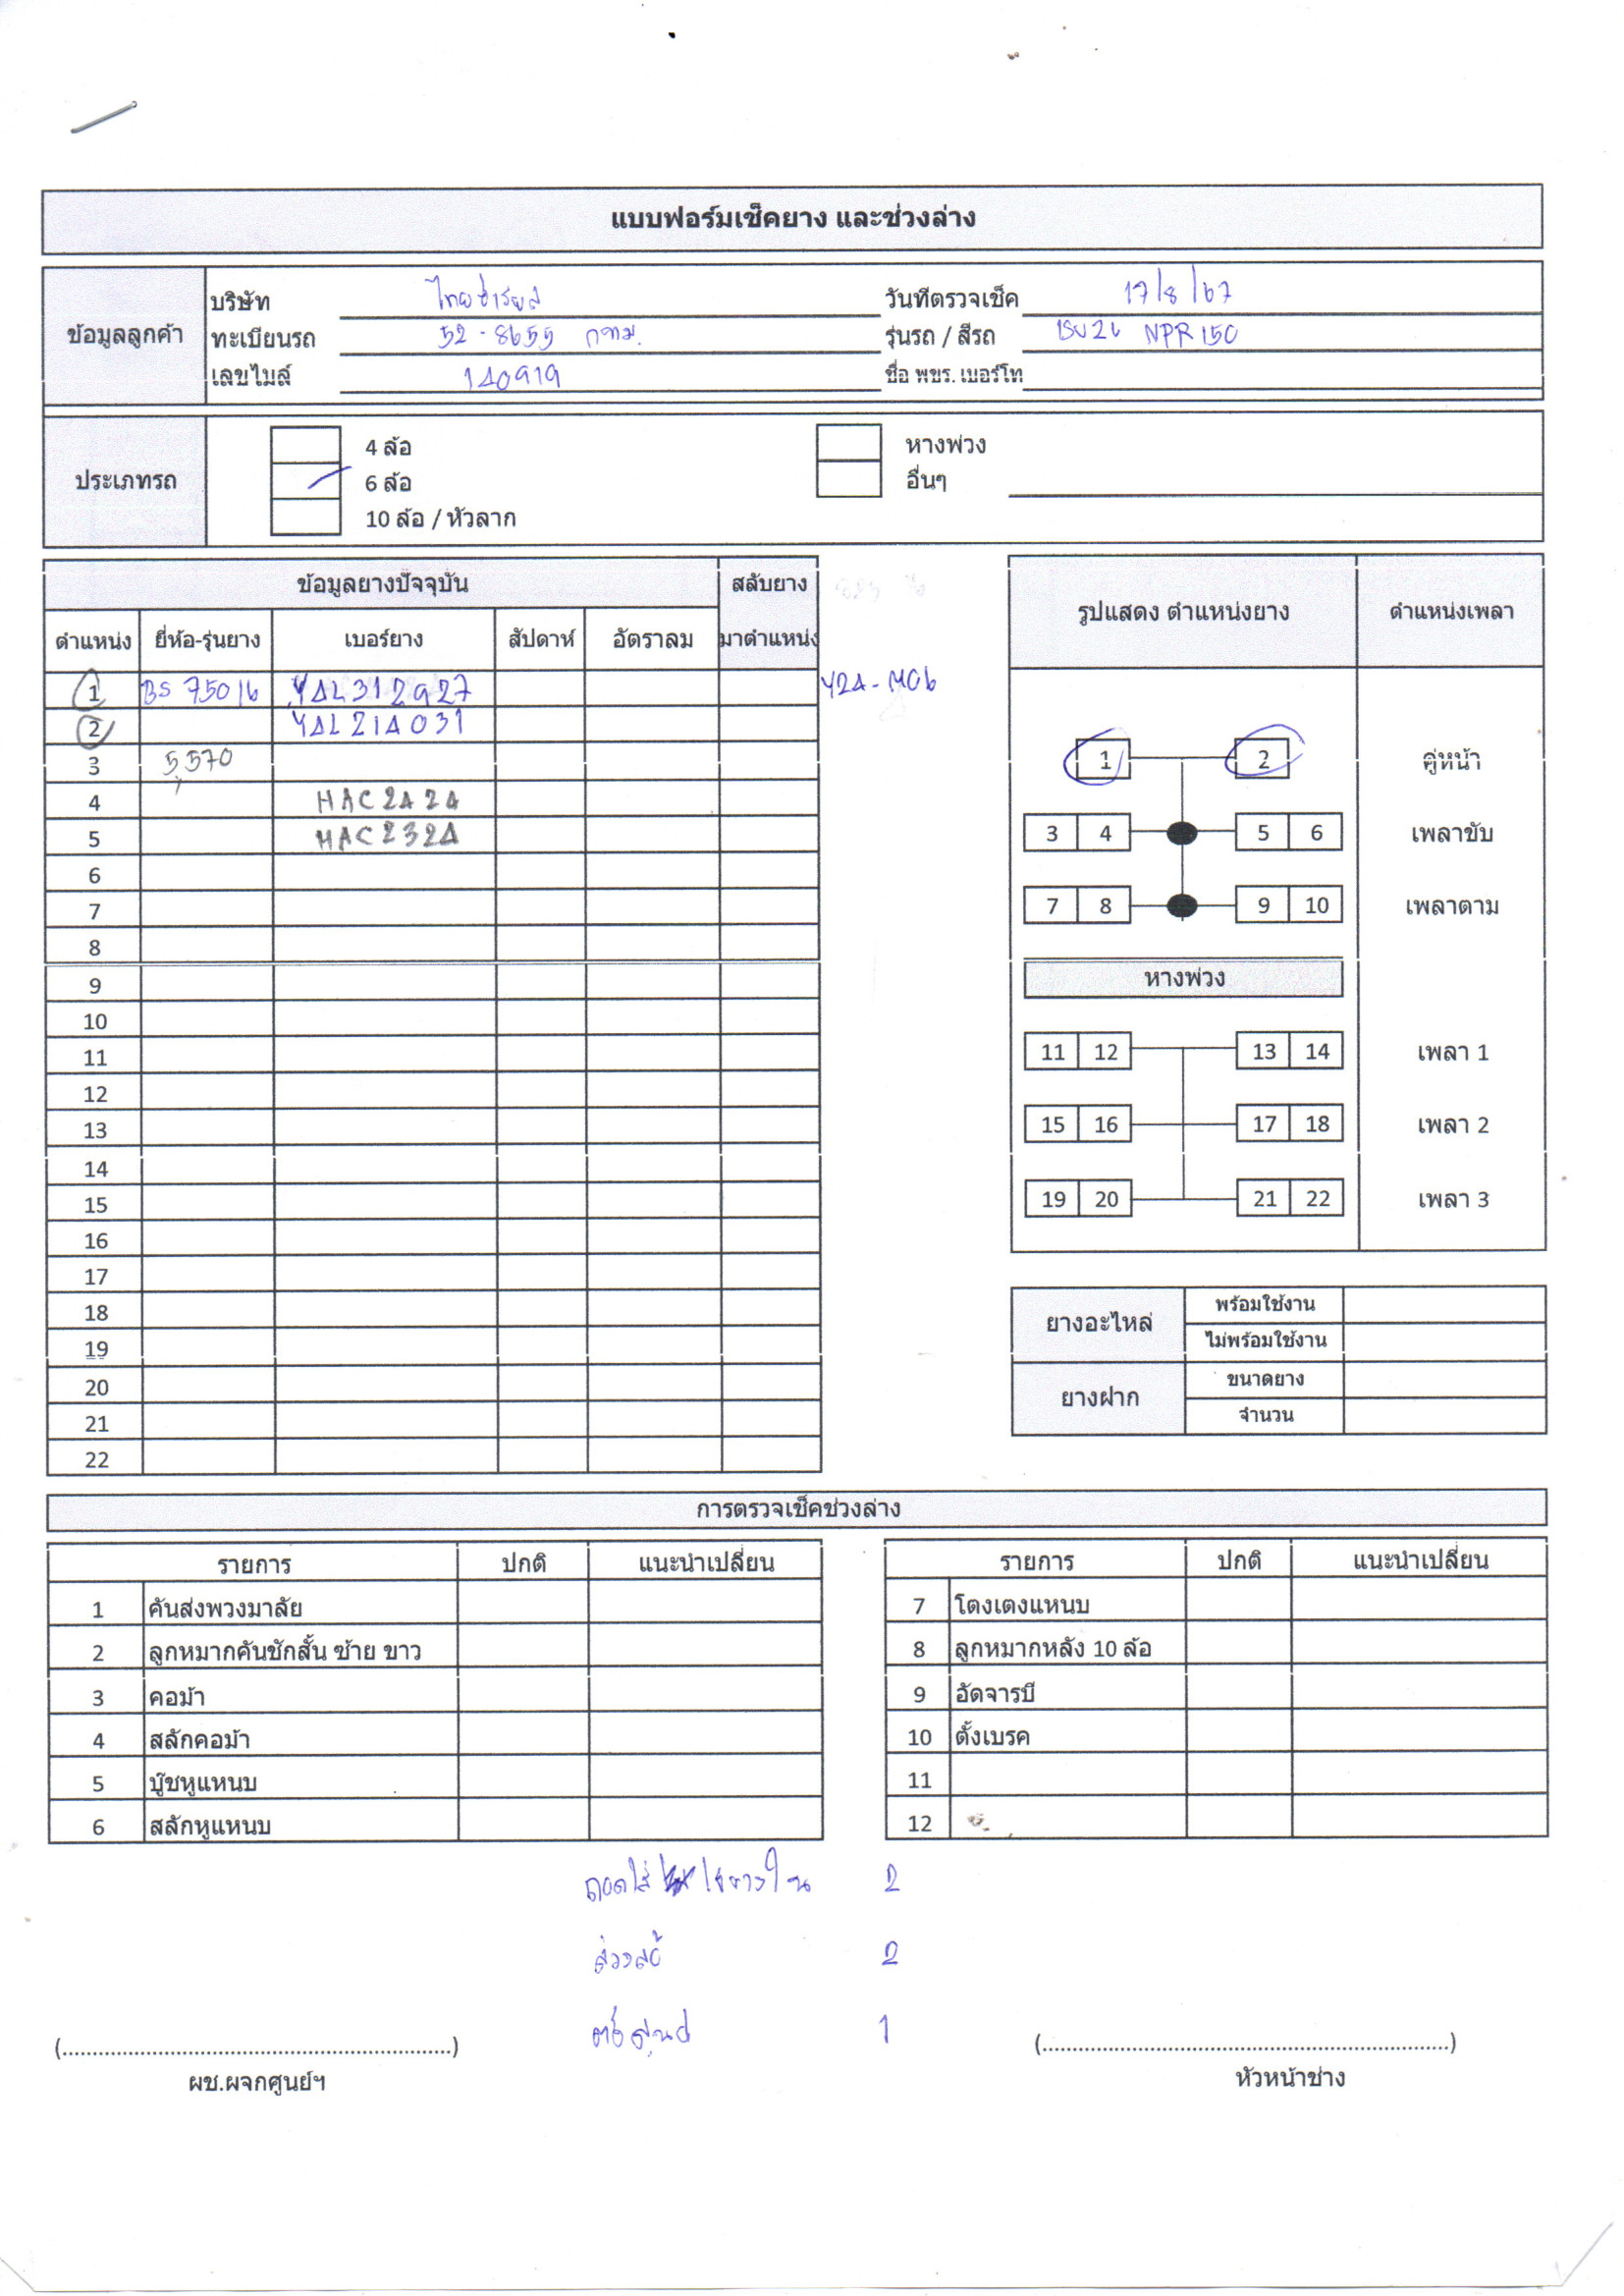 แบบฟอร์มเช็คยาง และช่วงล่าง
ข้อมูลลูกค้า
บริษัท
วันที่ตรวจเช็ค 17/8/67
ทะเบียนรถ 52-8655 กทม.
รุ่นรถ / สีรถ NPR 150
เลขไมล์ 140919
ชื่อ พขร. เบอร์โท
ประเภทรถ
4 ล้อ
6 ล้อ
10 ล้อ / หัวลาก
หางพ่วง
อื่นๆ
ข้อมูลยางปัจจุบัน สลับยาง
ตำแหน่ง ยี่ห้อ-รุ่นยาง เบอร์ยาง สัปดาห์ อัตราลม มาตำแหน่ง
1 BS 75016 Y4L312927 Y24-M06
2 Y4L214031
3 5,570
4 HAC2424
5 HAC2324
6
7
8
9
10
11
12
13
14
15
16
17
18
19
20
21
22
รูปแสดง ตำแหน่งยาง ตำแหน่งเพลา
1 2 คู่หน้า
3 4 5 6 เพลาขับ
7 8 9 10 เพลาตาม
หางพ่วง
11 12 13 14 เพลา 1
15 16 17 18 เพลา 2
19 20 21 22 เพลา 3
ยางอะไหล่ พร้อมใช้งาน
ไม่พร้อมใช้งาน
ยางฝาก ขนาดยาง
จำนวน
การตรวจเช็คช่วงล่าง
รายการ ปกติ แนะนำเปลี่ยน
1 คันส่งพวงมาลัย
2 ลูกหมากคันชักสั้น ซ้าย ขาว
3 คอม้า
4 สลักคอม้า
5 บู๊ชหูแหนบ
6 สลักหูแหนบ
รายการ ปกติ แนะนำเปลี่ยน
7 โตงเตงแหนบ
8 ลูกหมากหลัง 10 ล้อ
9 อัดจารบี
10 ตั้งเบรค
11
12
ถอดใส่ ยางใน 2
ถ่วงล้อ 2
ตั้งศูนย์ 1
(..........)
ผช.ผจกศูนย์ฯ
(..........)
หัวหน้าช่าง